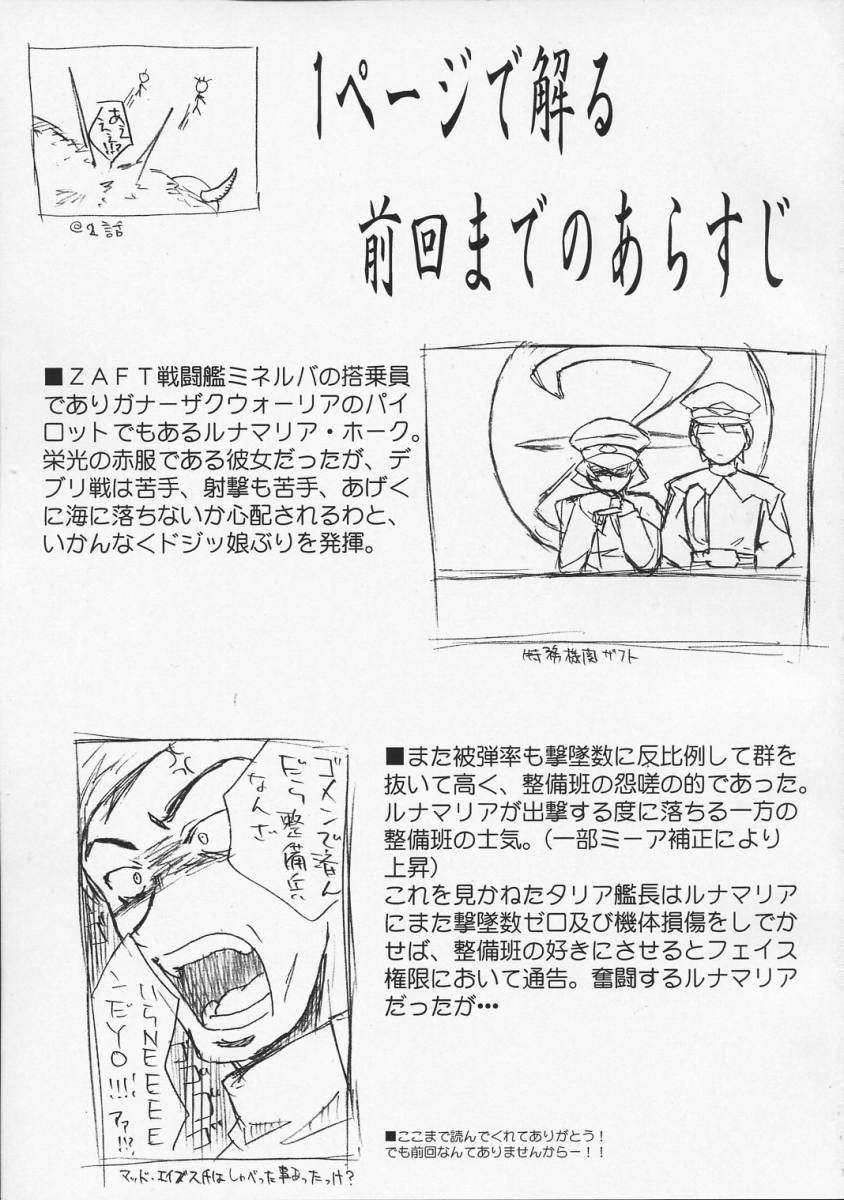 1ページで解る
前回までのあらすじ
あぇ
ぇぇ!!?
@1話
■ZAFT戦闘艦ミネルバの搭乗員
でありガナーザクウォーリアのパイ
ロットでもあるルナマリア・ホーク。
栄光の赤服である彼女だったが、デ
ブリ戦は苦手、射撃も苦手、あげく
に海に落ちないか心配されるわと、
いかんなくドジッ娘ぶりを発揮。
特務機関ザフト
■また被弾率も撃墜数に反比例して群を
抜いて高く、整備班の怨嗟の的であった。
ルナマリアが出撃する度に落ちる一方の
整備班の士気。(一部ミーア補正により
上昇)
これを見かねたタリア艦長はルナマリア
にまた撃墜数ゼロ及び機体損傷をしでか
せば、整備班の好きにさせるとフェイス
権限において通告。奮闘するルナマリア
だったが・・・
ゴメンで済ん
だら整備兵
なんざ
いらNEEEE
んだYO!!!!
アァ!!?
マッド・エイブス氏はしゃべった事あったっけ?
■ここまで読んでくれてありがとう!
でも前回なんてありませんからー!!